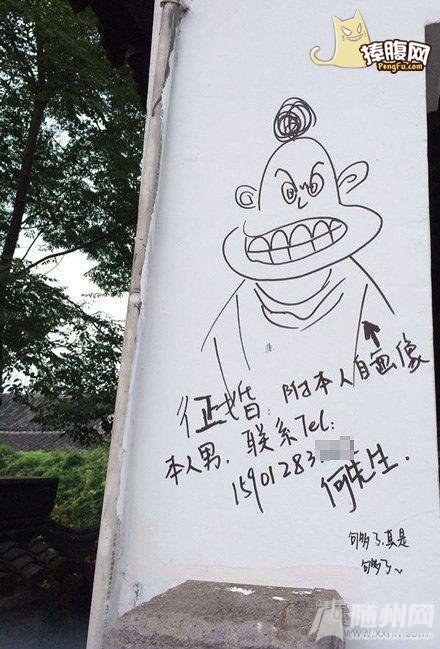 捧腹网
PengFu.com
征婚：附本人自画像
本人男，联系Tel：
15901283
何先生．
够了，真是
够了~
随州网